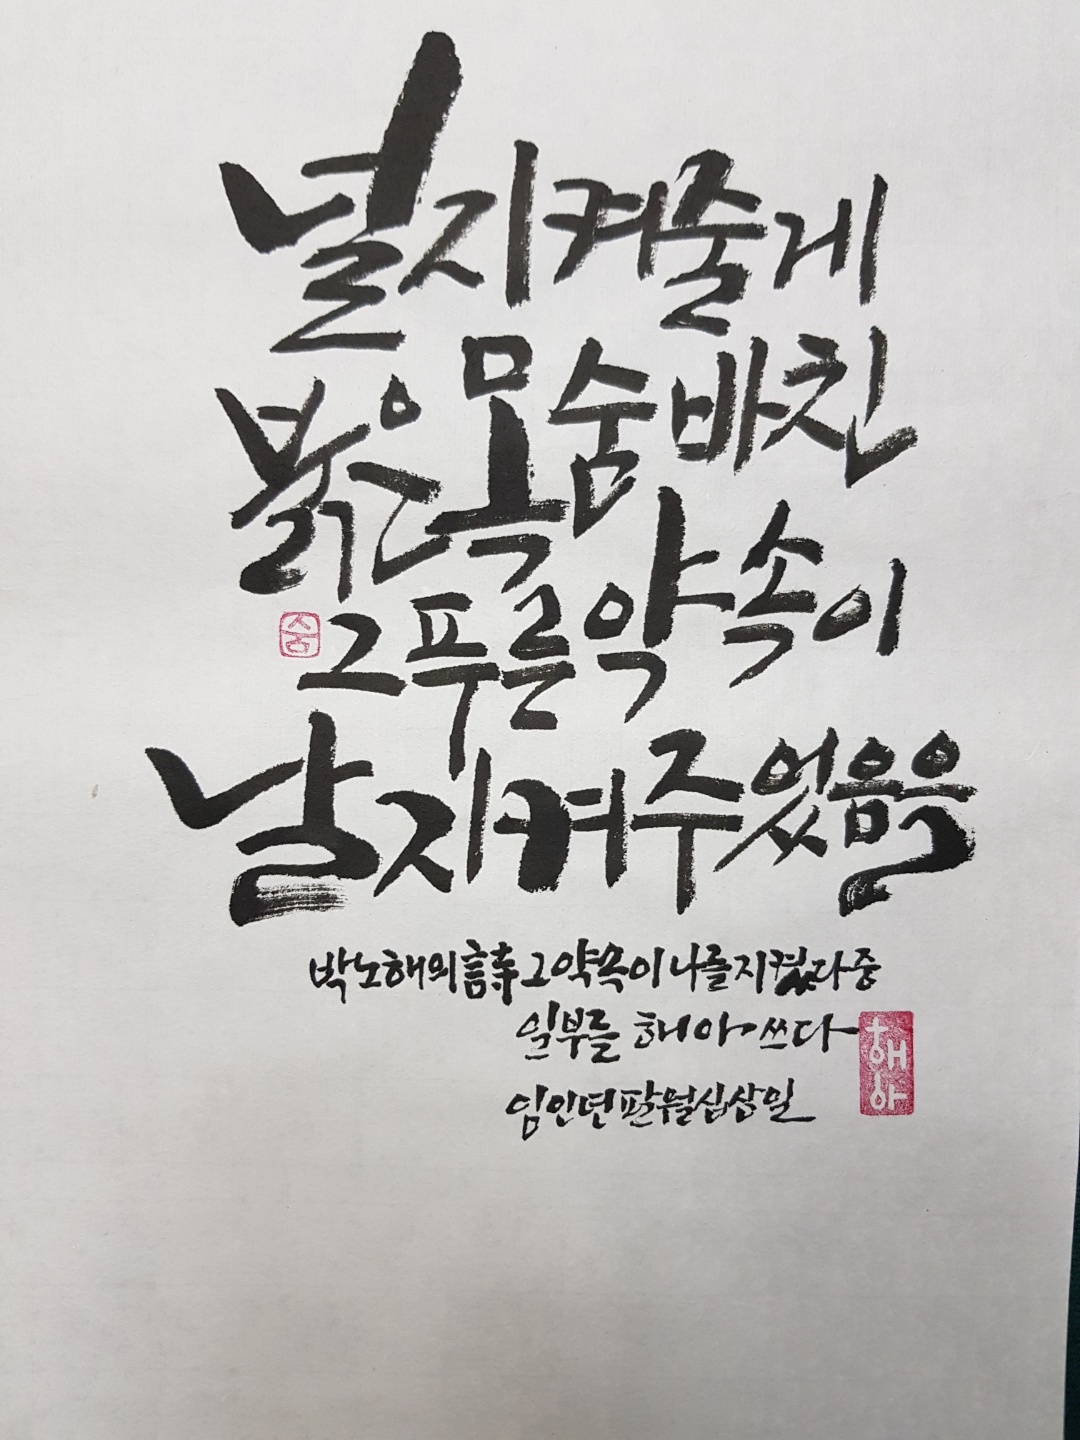 널 지켜줄게
붉은 목숨 바친
그 푸른 약속이
숨
날 지켜주었음을
박노해의 詩 그 약속이 나를 지켰다 중
일부를 해아 쓰다
해아
임인년 팔월 십삼일